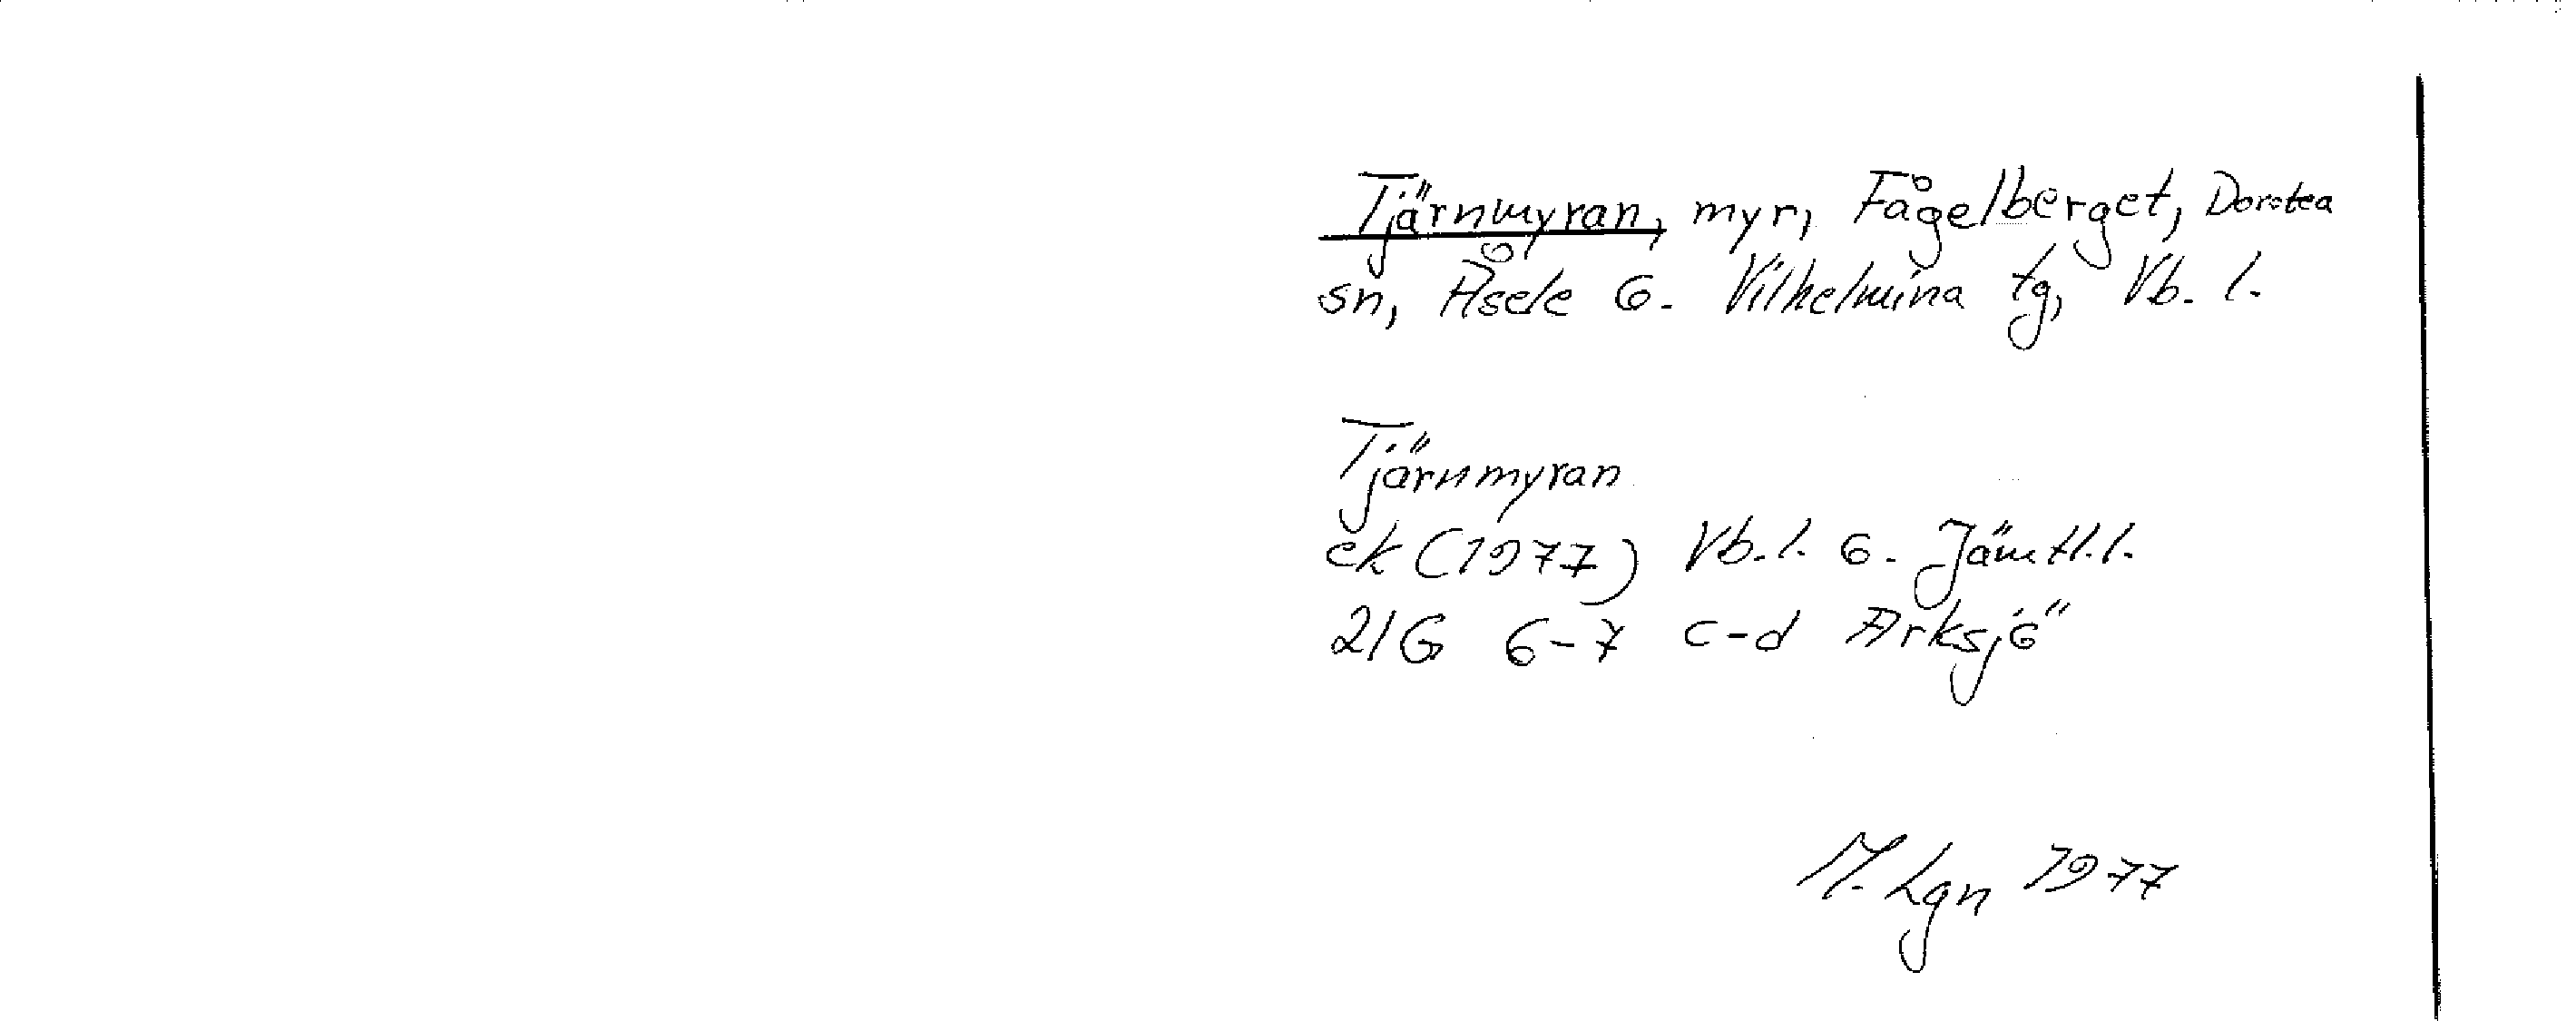 Tjärnmyran, myr, Fågelberget, Dorotea
sn, Åsele o. Vilhelmina tg, Vb. l.
Tjärnmyran
ek (1977) Vb. l. o. Jämtl. l.
21G 6-7 c-d Arksjö
M. Lgn 1977